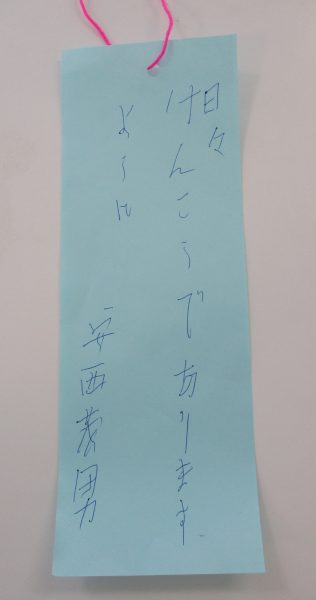 日々
けんこうであります
ように
安西茂男